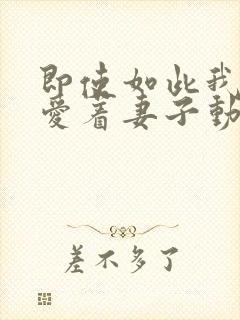 即使如此我
愛着妻子動
差不多了